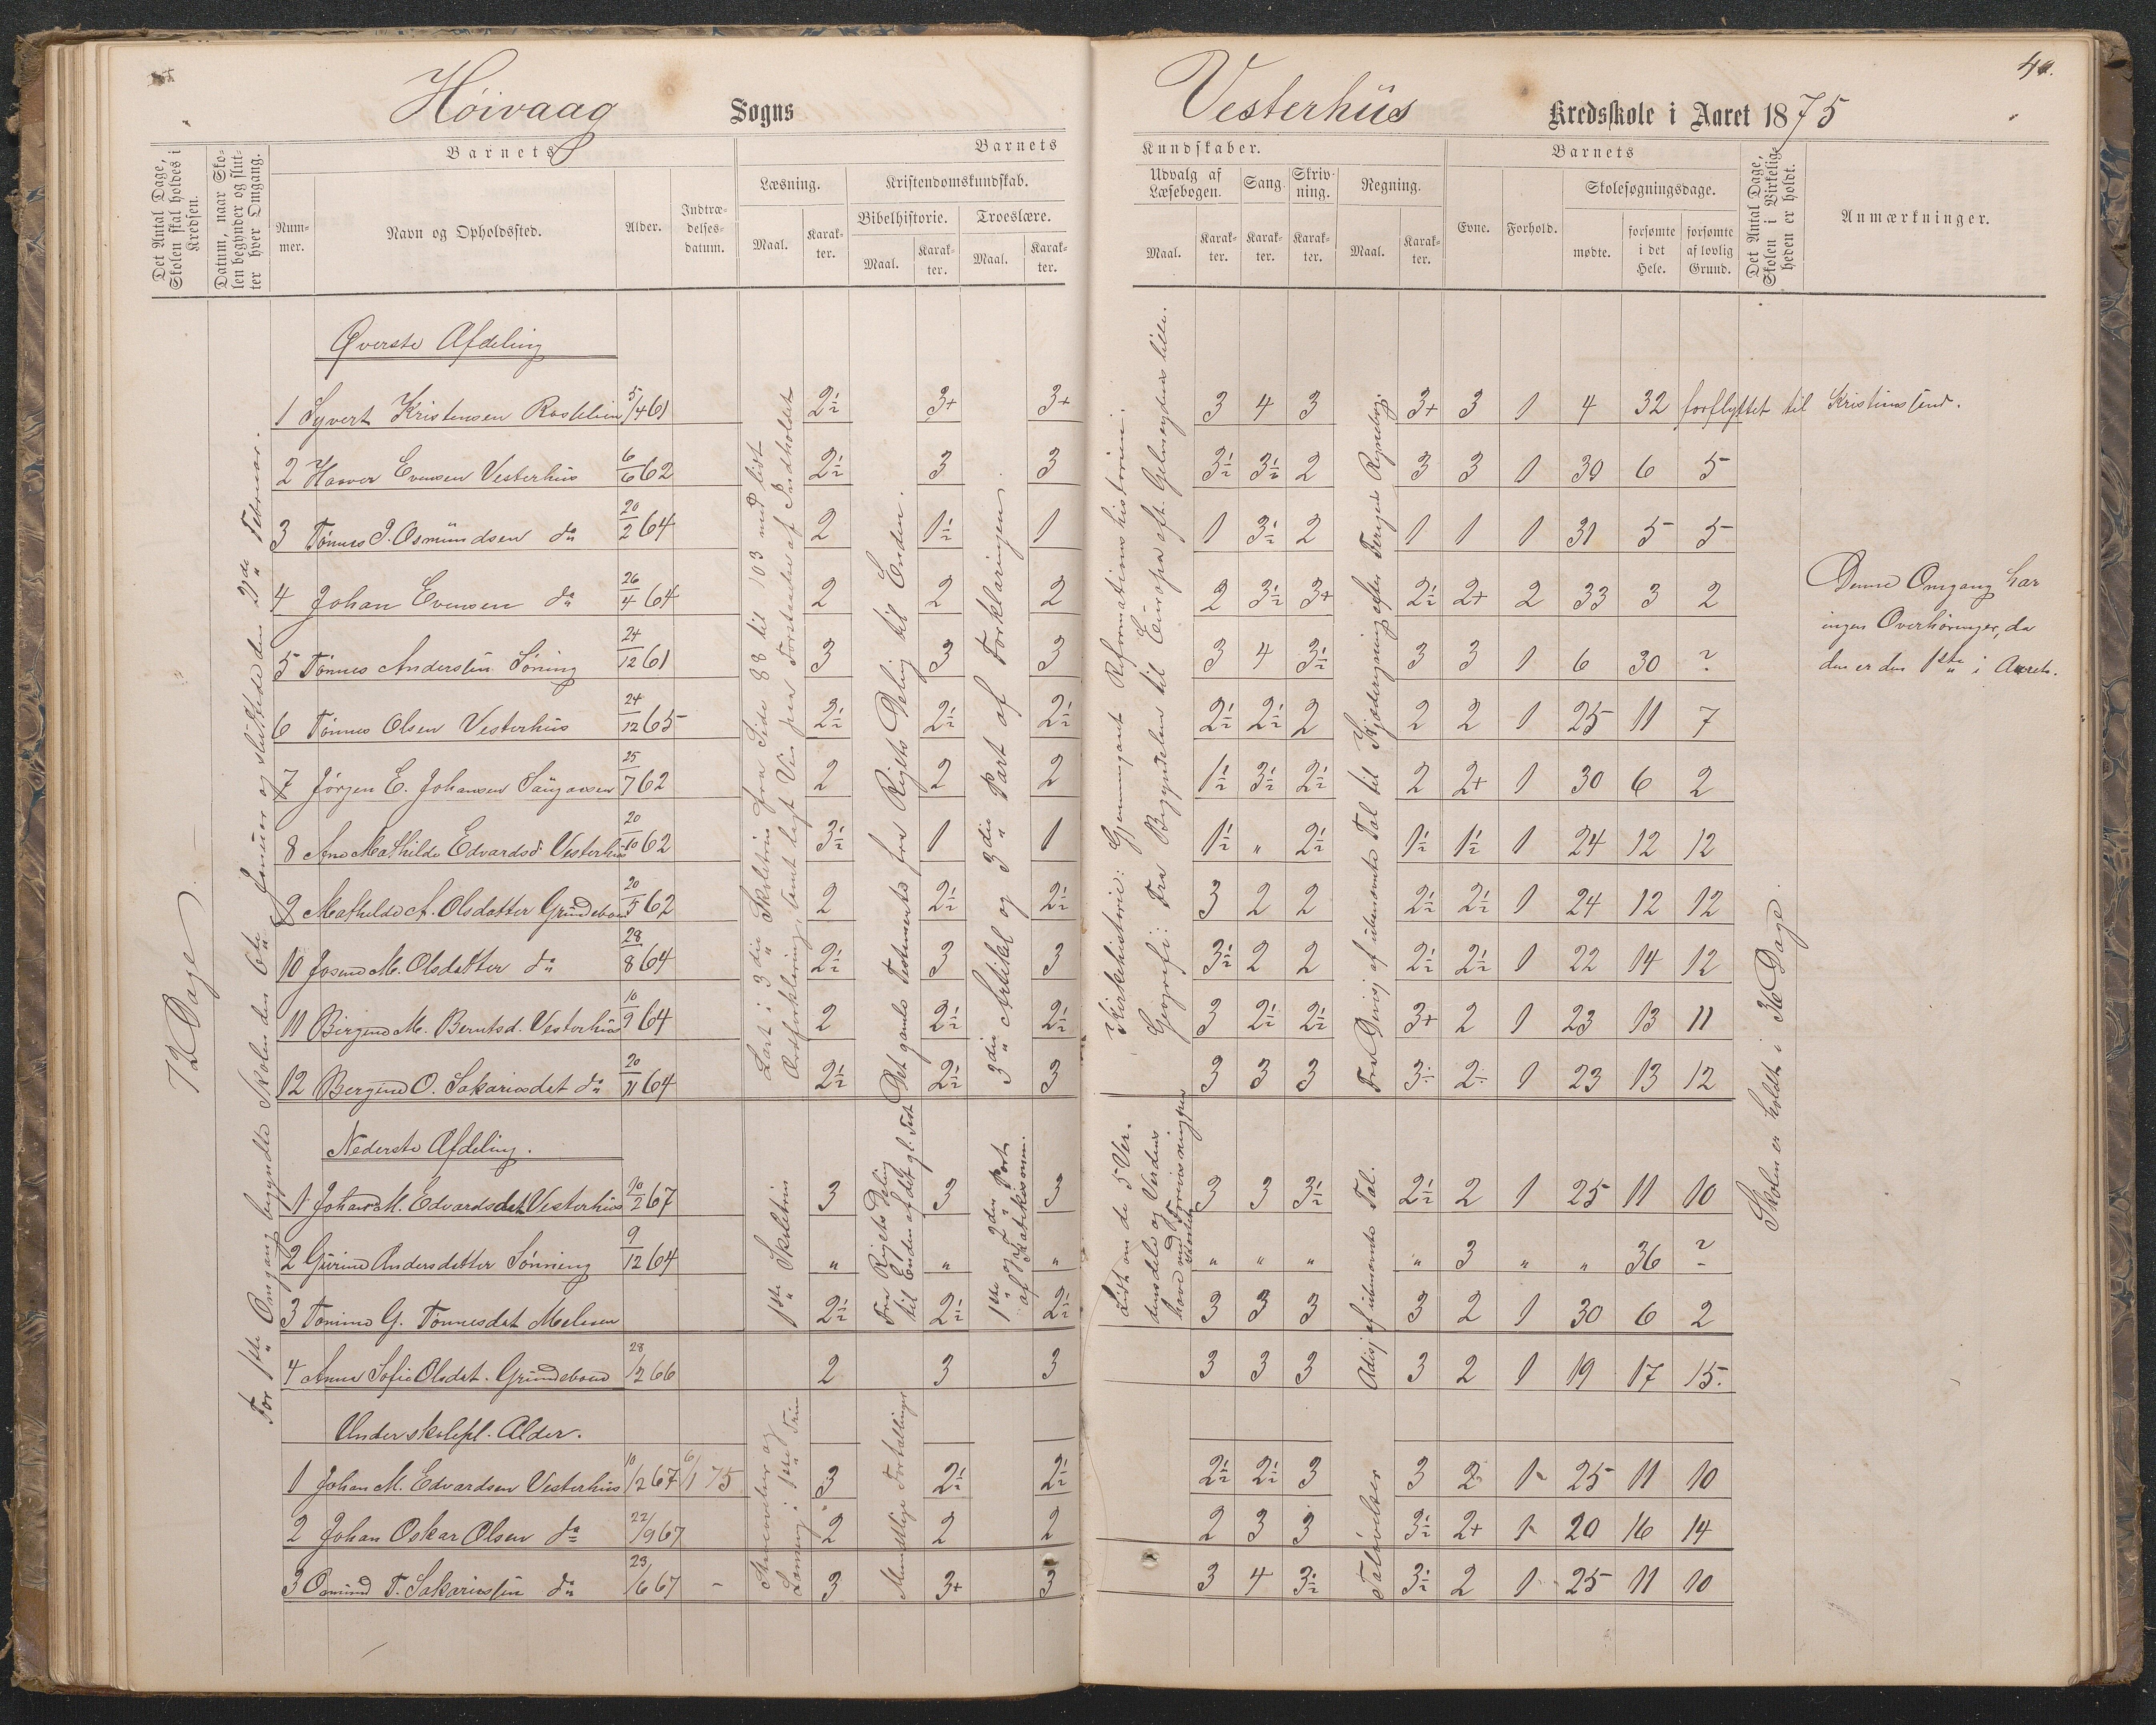 Høivaag Sogns
Vesterhüs Kredsskole i Aaret 1875
Det Antal Dage, Skolen skal holdes i Kredsen.
Datum, naar Skolen begynder og slutter hver Omgang.
Barnets
Nummer.
Navn og Opholdssted.
Alder.
Indtrædelsesdatum.
Barnets
Læsning.
Maal.
Karakter.
Kristendomskundskab.
Bibelhistorie.
Maal.
Karakter.
Troeslære.
Maal.
Karakter.
Kundskaber.
Udvalg af Læsebogen.
Maal.
Karakter.
Sang.
Karakter.
Skrivning.
Karakter.
Regning.
Maal.
Karakter.
Barnets
Evne.
Forhold.
Skolesøgningsdage.
mødte.
forsømte i det Hele.
forsømte af lovlig Grund.
Det Antal Dage, Skolen i Virkeligheden er holdt.
Anmærkninger.
72 Dage
For 1ste Omgang begyndte Skolen den 6te Januar og sluttede den 2den Februar.
Øverste Afdeling
1 Syvert Kristensen 5/4 61 2½ 3+ 3+ 3 4 3 3+ 3 1 4 32 forflyttet til
2 Evensen Vesterhüs 6/6 62 2½ 3 3 3½ 3½ 2 3 3 1 30 6 5
3 Tønnes Osmündsen do 20/2 64 2 1½ 1 1 3½ 2 1 1 1 31 5 5
4 Johan Evensen do 26/4 64 2 2 2 2 3½ 3+ 2½ 2+ 2 33 3 2
5 Tønnes Andersen 24/12 61 3 3 3 3 4 3½ 3 3 1 6 30 ?
6 Tønnes Olsen Vesterhüs 24/12 65 2½ 2½ 2½ 2½ 2½ 2 2 2 1 25 11 7
7 Jørgen E. Johansen 25/7 62 2 2 2 1½ 3½ 2½ 2 2+ 1 30 6 2
8 Ane Mathilde Edvardsd. Vesterhüs 20/10 62 3½ 1 1 1½ " 2½ 1½ 1½ 1 24 12 12
9 Mathilde A. Olsdatter 20/5 62 2 2½ 2½ 3 2 2 2½ 2½ 1 24 12 12
10 M. Olsdatter do 28/8 64 2½ 3 3 3½ 2 2 2½ 2½ 1 22 14 12
11 M. Berntsd. Vesterhüs 10/9 64 2 2½ 2½ 3 2½ 2½ 3+ 2 1 23 13 11
12 O. Sakariasdat do 20/11 64 2½ 2½ 3 3 3 3 3÷ 2÷ 1 23 13 12
Læst i 3die Skoletrin fra Side 88 til 103 med lidt
Ordforklaring, samt lagt Vin paa Forstaaelse af Indholdet
Det gamle Testamente fra Rigets Deling til Enden.
3die Artikel og 3die Part af Forklaringen.
Kirkehistorie: Gjennemgaaet Reformationshistorien.
Geografi: Fra Begyndelsen til Europa
Denne Omgang har
ingen Overhøringer, da
den er den 1ste i Aaret.
Nederste Afdeling.
1 M. Edvardsdat Vesterhüs 10/2 67 3 3 3 3 3 3½ 2½ 2 1 25 11 10
2 Andersdatter 9/12 64 " " " " " " " 3 " " 36 ?
3 G. Tønnesdat 2½ 2½ 2½ 3 3 3 3 2 1 30 6 2
4 Anne Sofie Olsdat. 28/12 66 2 3 3 3 3 3 3 2 1 19 17 15.
1ste Skoletrin
Fra Rigets Deling til Enden af det gl. Test
1ste og 2den Part af Katekismen.
Lidt om de 5 Verdensdele og Verdenshave
Adisj af ubenævnte Tal.
Under skolepl. Alder.
1 Johan M. Edvardsen Vesterhüs 10/2 67 6/1 75 3 2½ 2½ 2½ 2½ 3 3 2 1 25 11 10
2 Johan Oskar Olsen do 22/9 67 2 2 2 2 3 3 3½ 2+ 1 20 16 14
3 Osmünd T. Sakariassen do 23/6 67 - 3 3+ 3 3 4 3½ 3½ 2 1 25 11 10
Mundtlige Fortællinger
Taløvelser
Skolen er holdt i 36 Dage.